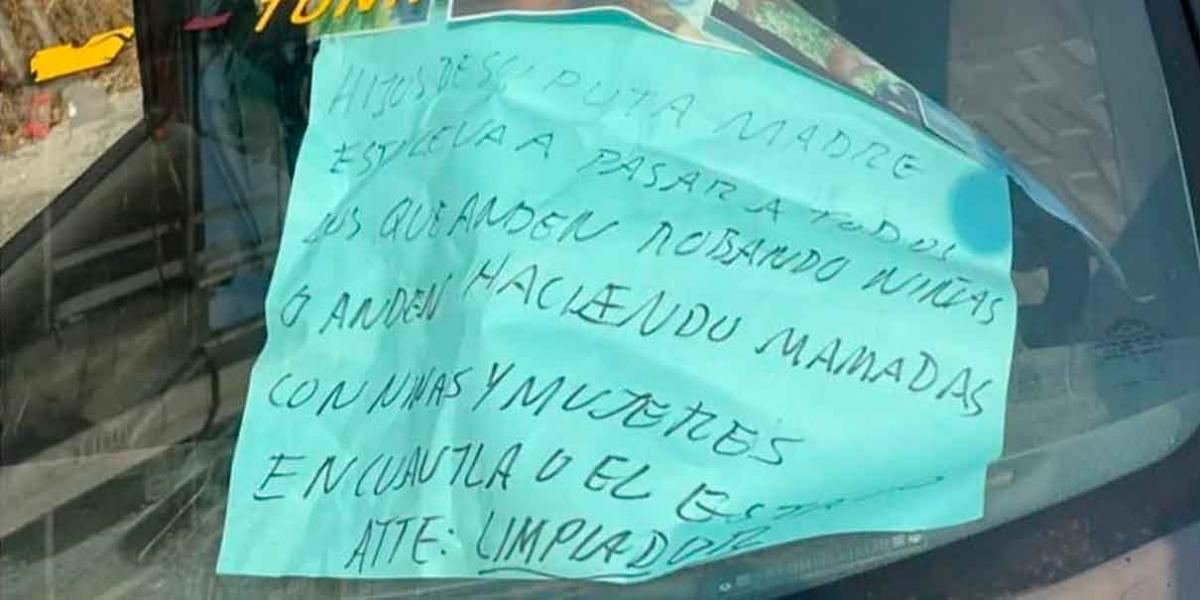 HIJOS DE SU PUTA MADRE
ESTO LE VA A PASAR A TODOS
LOS QUE ANDEN ROBANDO NIÑAS
O ANDEN HACIENDO MAMADAS
CON NIÑAS Y MUJERES
EN CUAUTLA O EL ESTADO
ATTE: LIMPIADOR